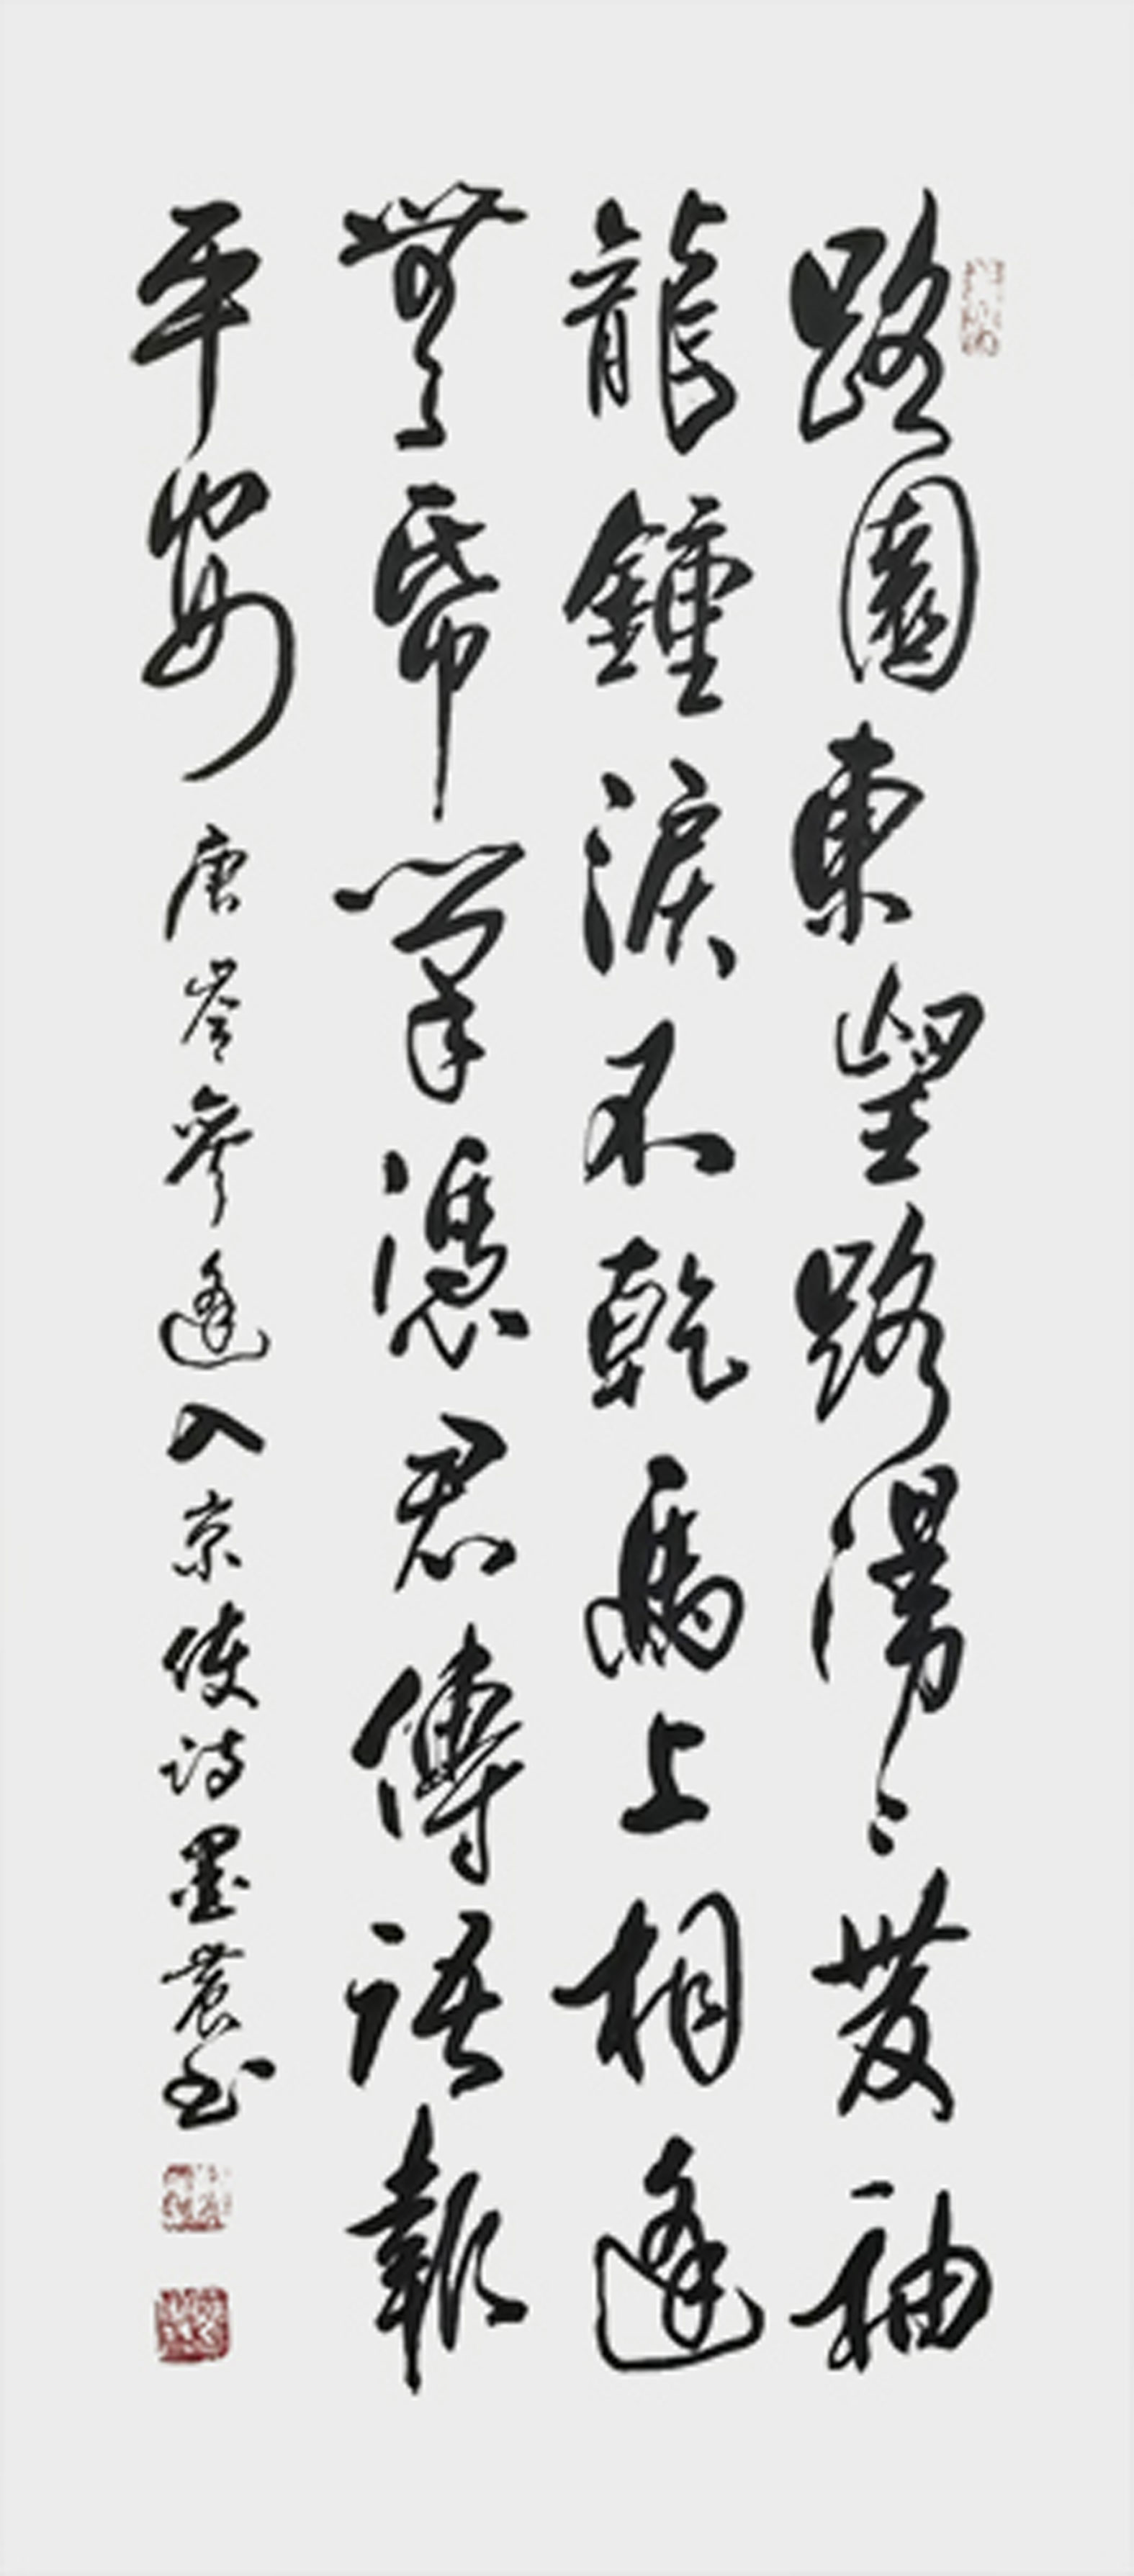 路園東望路漫々雙袖
龍鐘淚不乾馬上相逢
無帋筆憑君傳語報
平安 唐岑參逢入京使诗墨農书